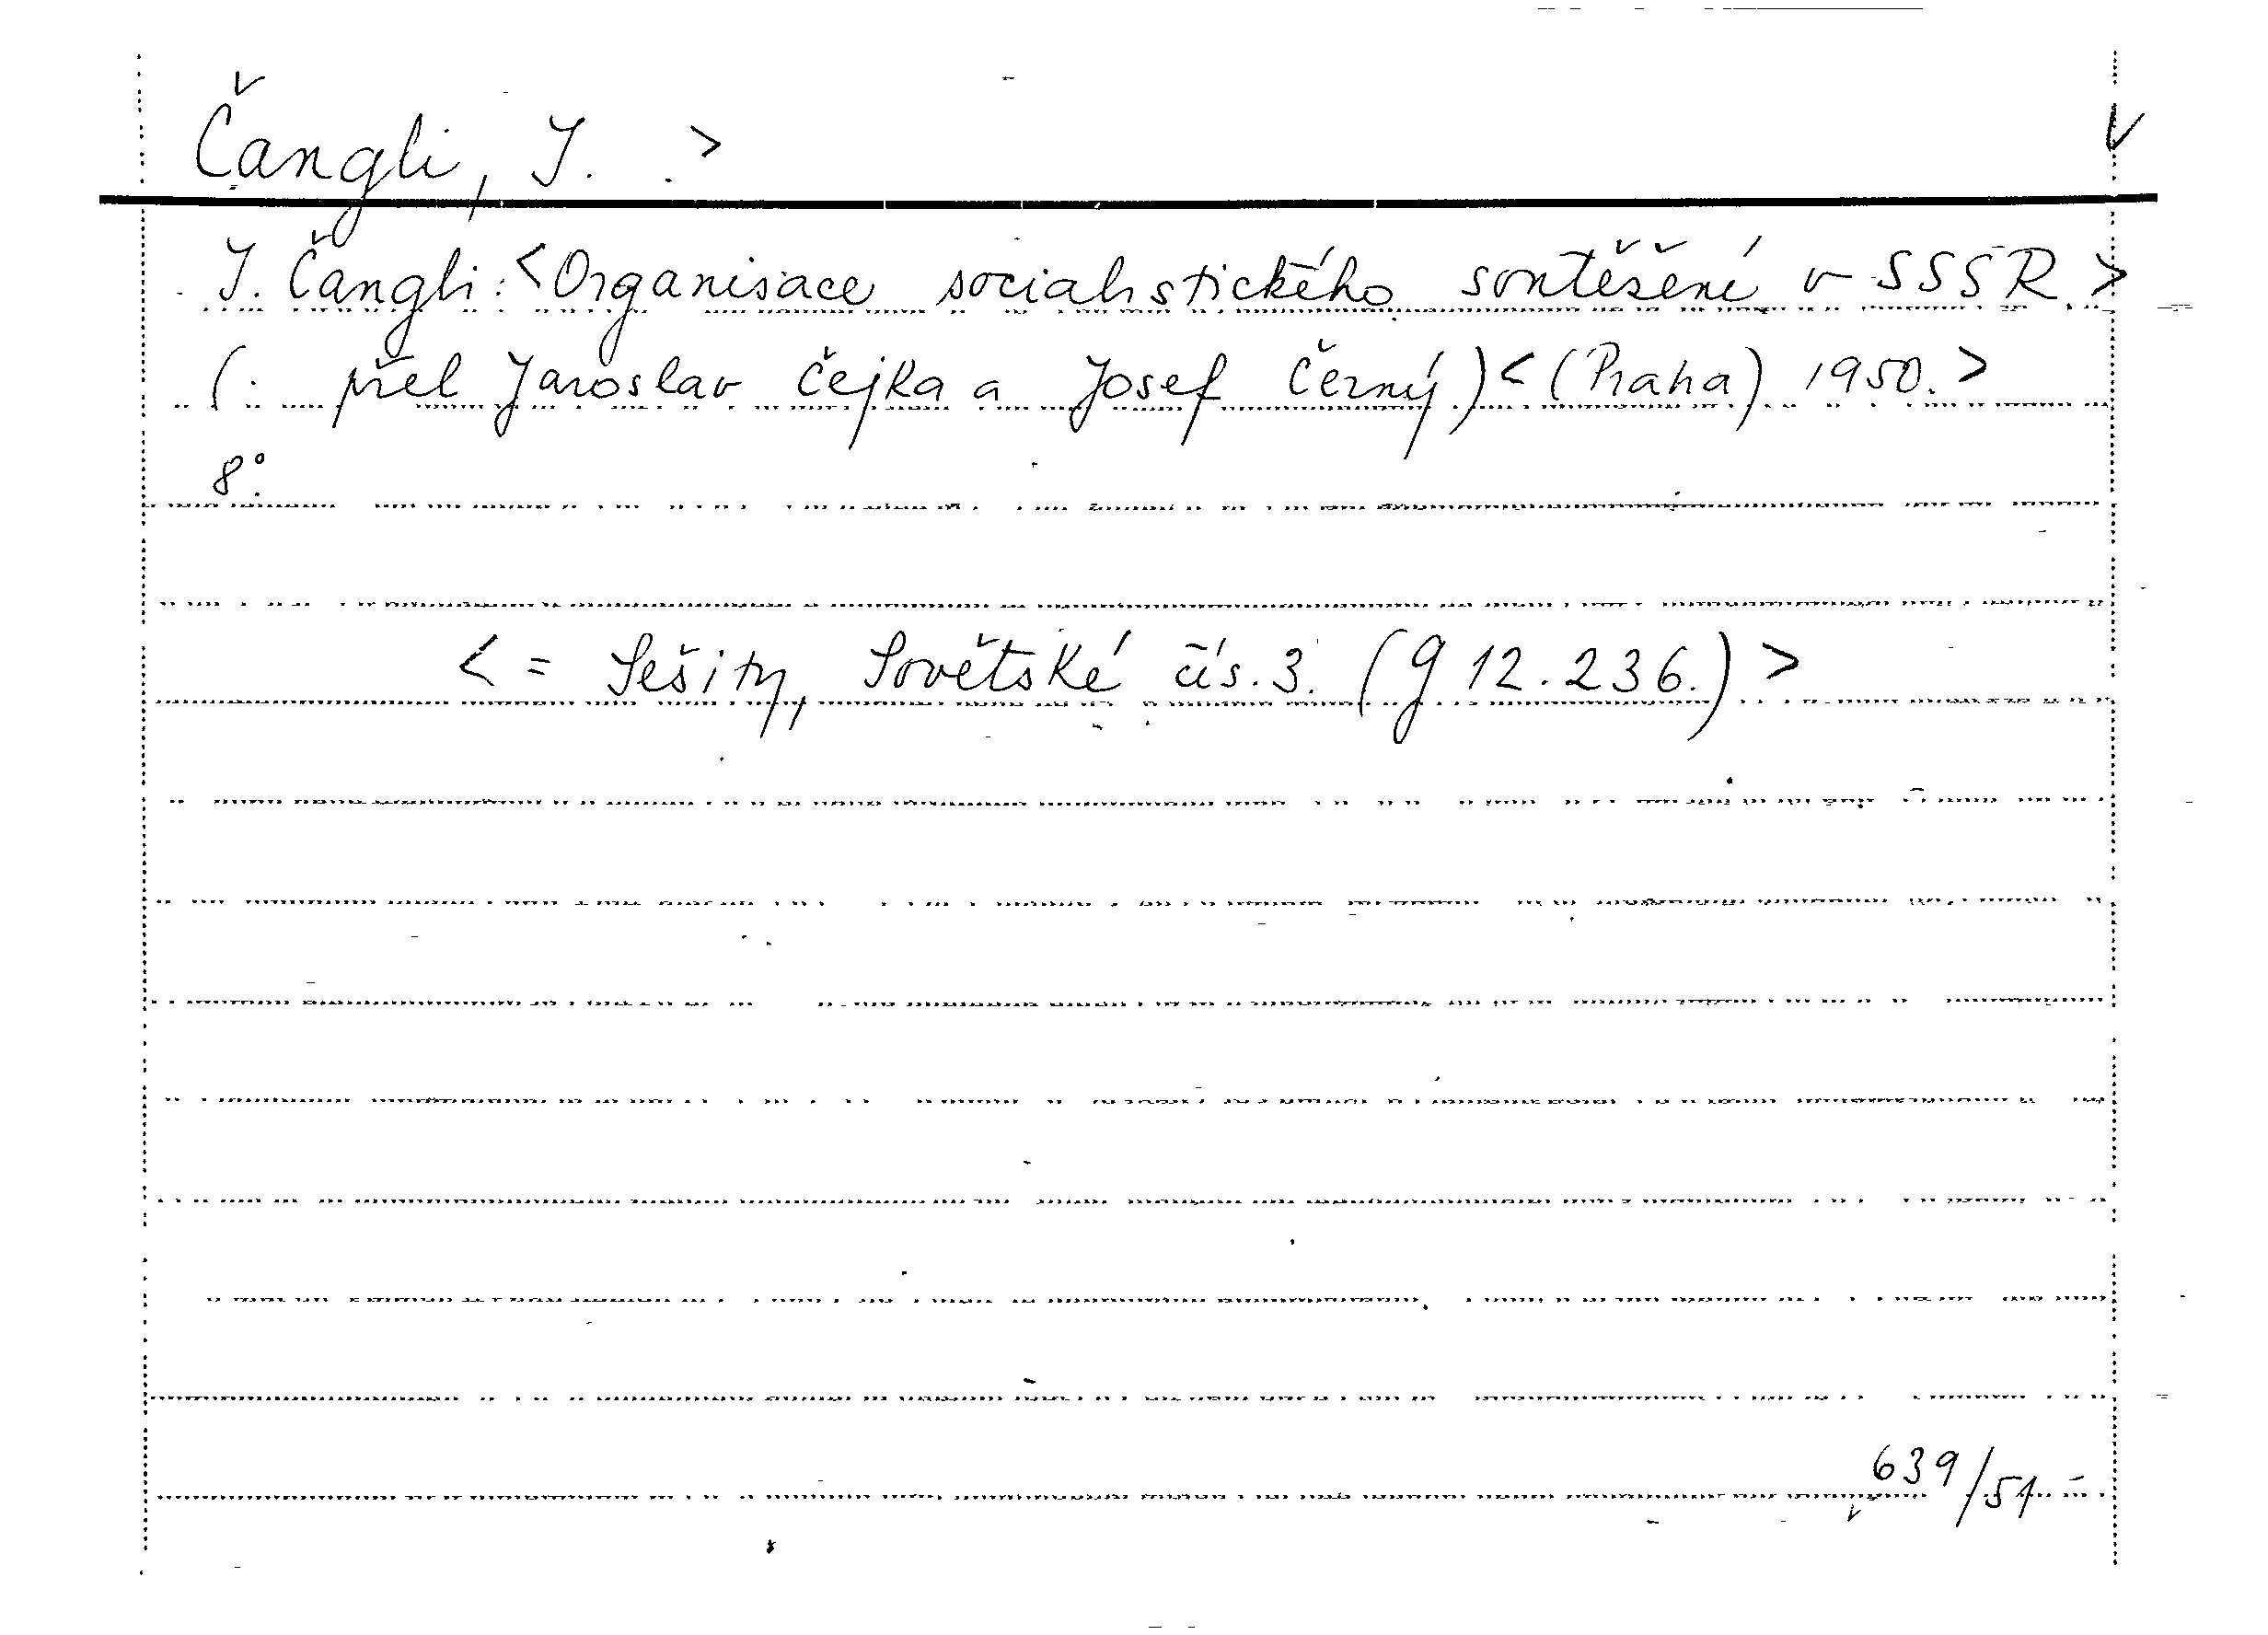 Čangli, J. >
J. Čangli: <Organisace socialistického soutěžení v SSSR.>
(: přel Jaroslav Čejka a Josef Černý) < (Praha) 1950. >
8°.
< = Sešity, Sovětské čís. 3. (g 12.236.) >
639/51